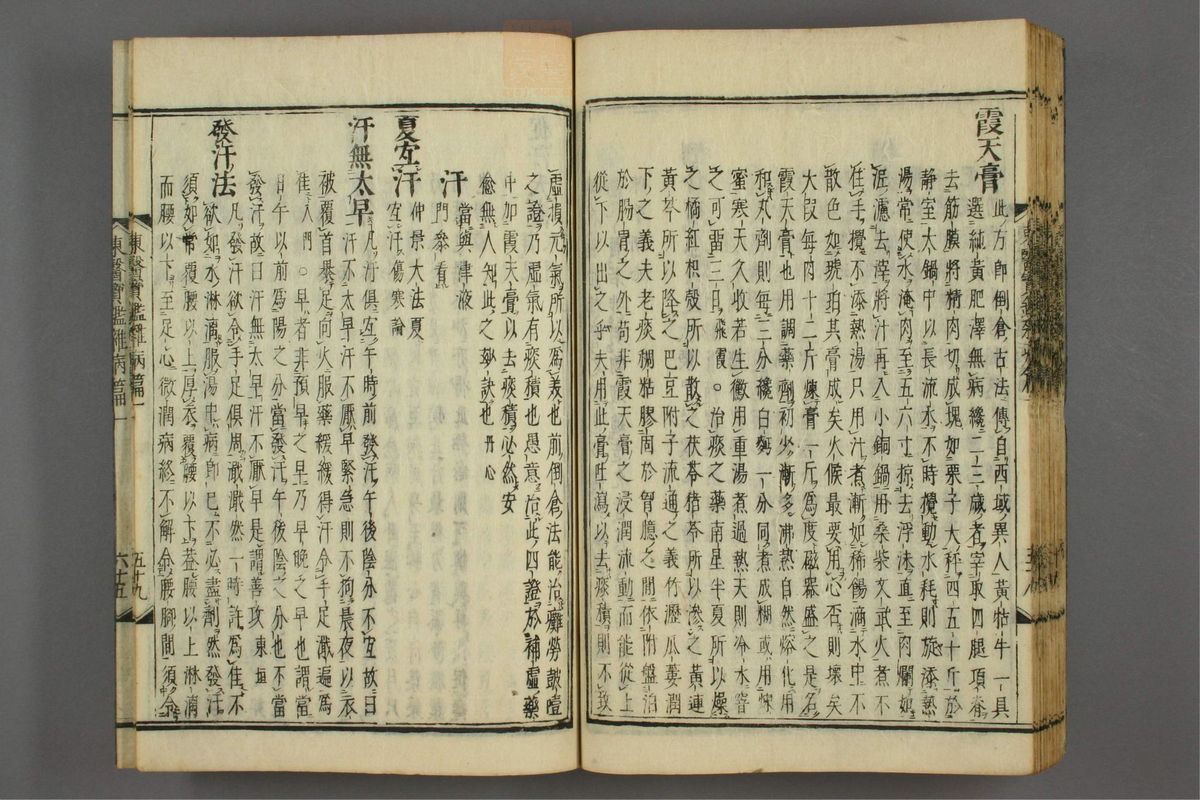 霞天膏
此方卽倒倉古法傳自西域異人黃牯牛一具
選純黃肥澤無病纔二三歲者宰取四腿項脊
去筋膜將精肉切成塊如栗子大秤四五十斤於
靜室大鍋中以長流水不時攪動水耗則旋添熱
湯常使水淹肉至五六寸掠去浮沫直至肉爛如
泥濾去滓將汁再入小銅鍋用桑柴文武火煮不
住手攪不添熱湯只用汁煮漸如稀餳滴水中不
散色如琥珀其膏成矣火候最要用心否則壞矣
大段每肉十二斤煉膏一斤爲度磁器盛之是名
霞天膏也用調藥劑初少漸多沸熱自然熔化用
和丸劑則每三分攙白麪一分同煮成糊或用煉
蜜寒天久收若生黴用重湯煮過熱天則冷水窖
之可留三日飛霞○治痰之藥南星半夏所以燥
之橘紅枳殼所以散之茯苓猪苓所以滲之黃連
黃芩所以降之巴豆附子流通之義竹瀝瓜蔞潤
下之義夫老痰稠粘膠固於胷臆之間依附盤泊
於腸胃之外苟非霞天膏之浸潤流動而能從上
從下以出之乎夫用此膏吐瀉以去痰積則不致
虛損元氣所以爲美也前倒倉法能治癱勞蠱噎
之證乃虛氣有痰積也愚意治此四證於補虛藥
中如霞天膏以去痰積必然安
愈無人知此之玅訣也丹心
汗
當與津液
門叅看
夏宜汗
仲景大法夏
宜汗傷寒論
汗無太早
凡汗俱宜午時前發汗午後陰分不宜故曰
汗不太早汗不厭早緊急則不拘晨夜以衣
被覆首擧足向火服藥緩緩得汗令手足濈遍爲
佳入門○者非預早之早乃早晩之早也謂當
日午以前爲陽之分當發汗午後陰之分也不當
發汗故曰汗無太早汗不厭早是謂善攻東垣
發汗法
凡發汗欲令手足俱周濈濈然一時許爲佳不
欲如水淋漓服湯中病卽已不必盡劑然發汗
須如常覆腰以上厚衣覆腰以下葢腰以上淋漓
而腰以下至足心微潤病終不解令腰脚間須令
東醫寶鑑雜病篇一
五十九
東醫寶鑑雜病篇一
六十五